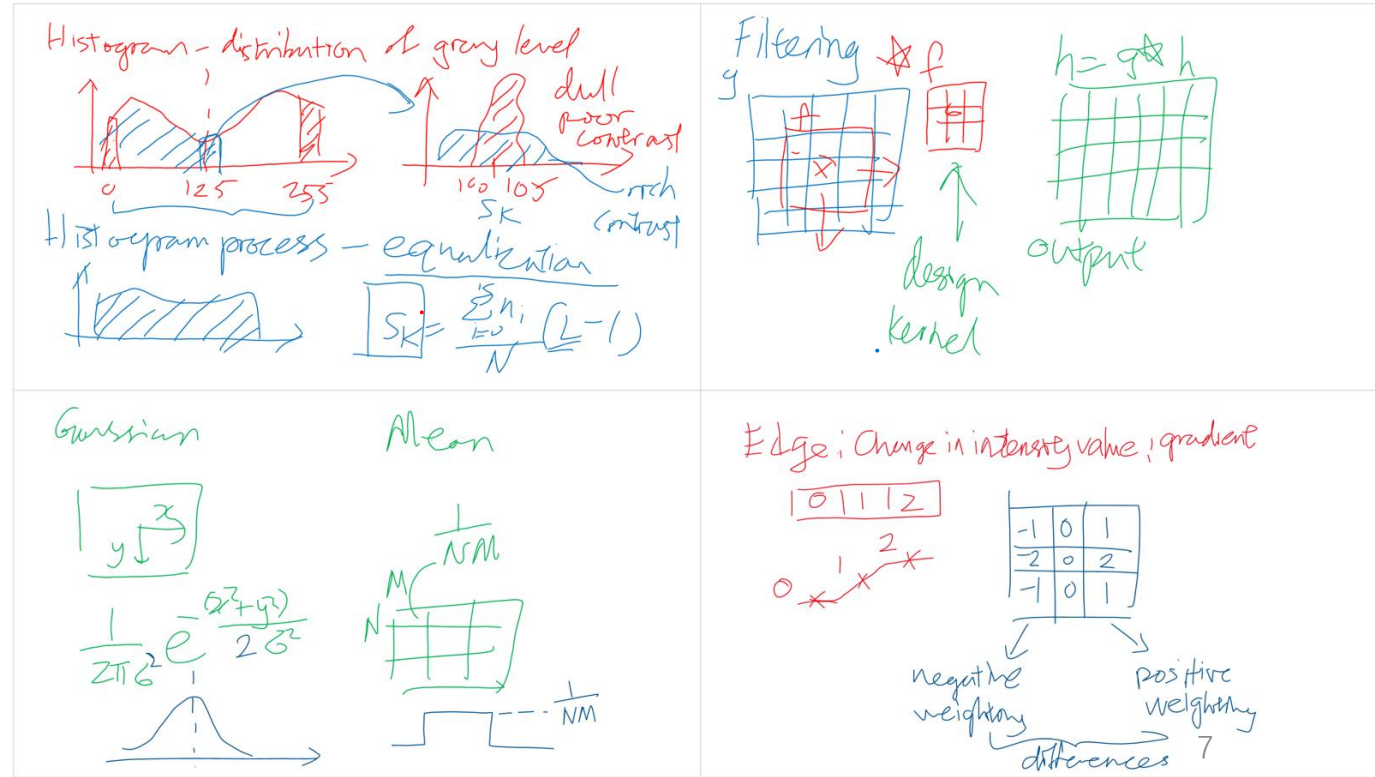 Histogram – distribution of gray level
0 125 255
100 105
dull
poor
contrast
rich
contrast
SK
Histogram process – equalization
SK = Σ ni (L-1)
i=0
N
Filtering
g ☆ f
h = g ☆ h
output
design
kernel
Gaussian
x
y
1/2πσ² e^-(x²+y²)/2σ²
Mean
1/NM
M
N
1/NM
Edge: Change in intensity value; gradient
0 1 1 2
0 1 2
-1 0 1
-2 0 2
-1 0 1
negative
weighting
positive
weighting
differences
7